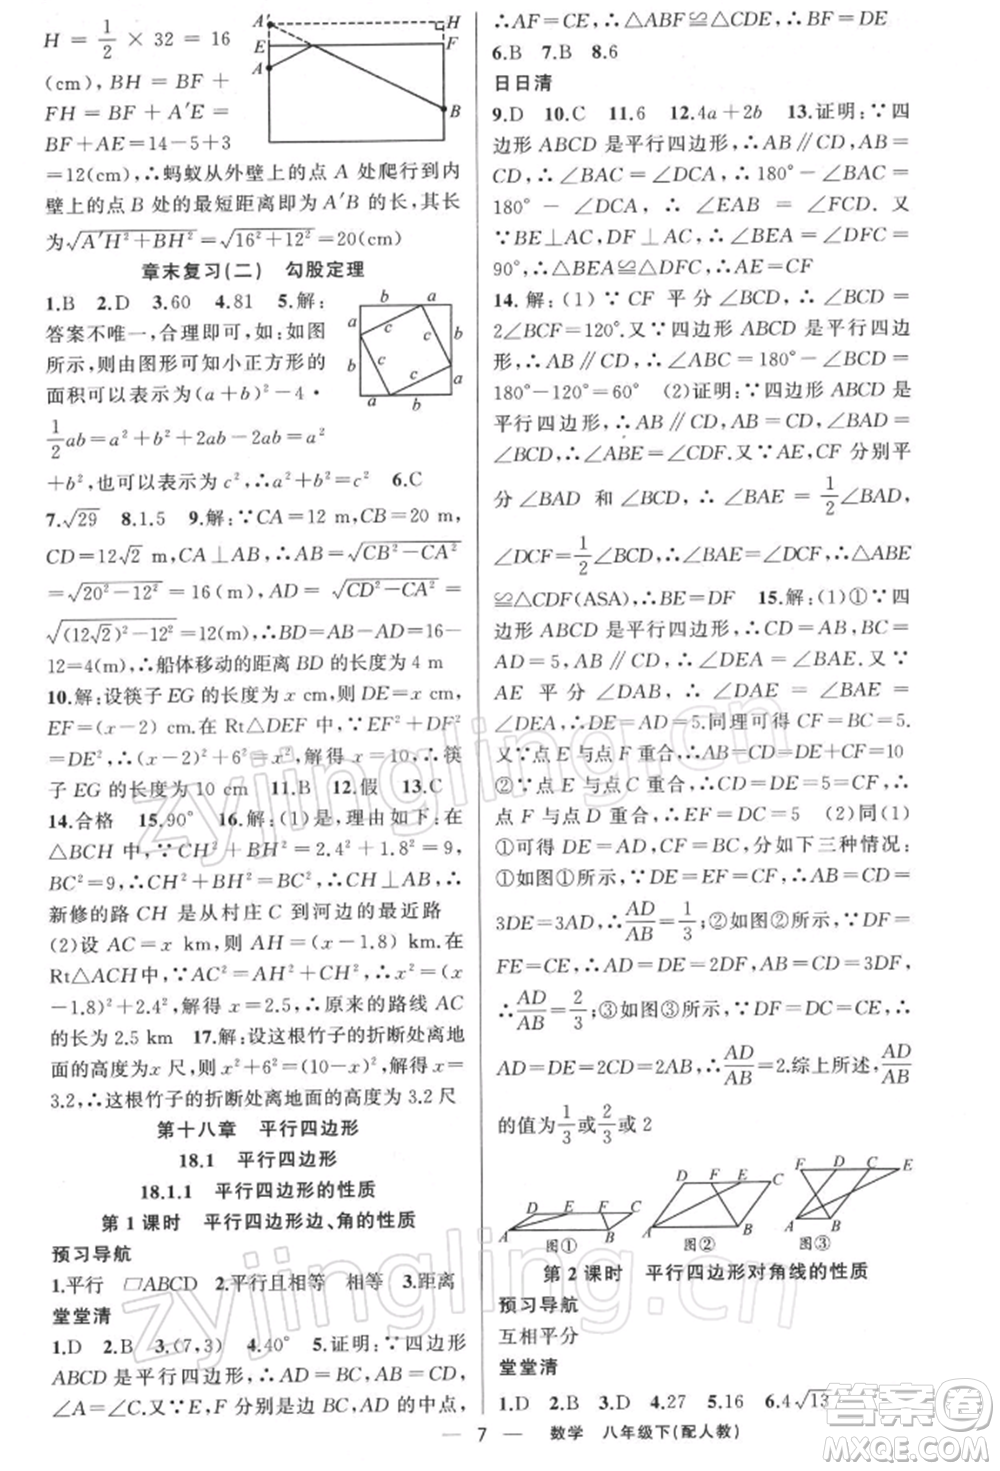 H = 1/2 × 32 = 16
(cm), BH = BF +
FH = BF + A′E =
BF + AE = 14 - 5 + 3
= 12(cm), ∴蚂蚁从外壁上的点 A 处爬行到内
壁上的点 B 处的最短距离即为 A′B 的长, 其长
为√(A′H²+BH²) = √(16²+12²) = 20(cm)
A′ H E F A B
章末复习(二) 勾股定理
1.B 2.D 3.60 4.81 5.解:
答案不唯一, 合理即可, 如: 如图
所示, 则由图形可知小正方形的
面积可以表示为(a+b)²-4·
1/2 ab = a²+b²+2ab-2ab = a²
+b², 也可以表示为 c², ∴a²+b²=c² 6.C
b a a c c b b c c a a b
7.√29 8.1.5 9.解: ∵CA=12 m, CB=20 m,
CD=12√2 m, CA⊥AB, ∴AB=√(CB²-CA²)
=√(20²-12²)=16(m), AD=√(CD²-CA²)=
√((12√2)²-12²)=12(m), ∴BD=AB-AD=16-
12=4(m), ∴船体移动的距离 BD 的长度为 4 m
10.解: 设筷子 EG 的长度为 x cm, 则 DE=x cm,
EF=(x-2) cm. 在 Rt△DEF 中, ∵EF²+DF²=
DE², ∴(x-2)²+6²=x², 解得 x=10, ∴筷
子 EG 的长度为 10 cm 11.B 12.假 13.C
14.合格 15.90° 16.解: (1)是, 理由如下: 在
△BCH 中, ∵CH²+BH²=2.4²+1.8²=9,
BC²=9, ∴CH²+BH²=BC², ∴CH⊥AB, ∴
新修的路 CH 是从村庄 C 到河边的最近路
(2)设 AC=x km, 则 AH=(x-1.8) km. 在
Rt△ACH 中, ∵AC²=AH²+CH², ∴x²=(x
-1.8)²+2.4², 解得 x=2.5, ∴原来的路线 AC
的长为 2.5 km 17.解: 设这根竹子的折断处离地
面的高度为 x 尺, 则 x²+6²=(10-x)², 解得 x=
3.2, ∴这根竹子的折断处离地面的高度为 3.2 尺
第十八章 平行四边形
18.1 平行四边形
18.1.1 平行四边形的性质
第1课时 平行四边形边、角的性质
预习导航
1.平行 ▱ABCD 2.平行且相等 相等 3.距离
堂堂清
1.D 2.B 3.(7,3) 4.40° 5.证明: ∵四边形
ABCD 是平行四边形, ∴AD=BC, AB=CD,
∠A=∠C. ∵E, F 分别是边 BC, AD 的中点,
∴AF=CE, ∴△ABF≌△CDE, ∴BF=DE
6.B 7.B 8.6
日日清
9.D 10.C 11.6 12.4a+2b 13.证明: ∵四
边形 ABCD 是平行四边形, ∴AB∥CD, AB=
CD, ∴∠BAC=∠DCA, ∴180°-∠BAC=
180°-∠DCA, ∴∠EAB=∠FCD. 又
∵BE⊥AC, DF⊥AC, ∴∠BEA=∠DFC=
90°, ∴△BEA≌△DFC, ∴AE=CF
14.解: (1)∵CF 平分∠BCD, ∴∠BCD=
2∠BCF=120°. 又∵四边形 ABCD 是平行四边
形, ∴AB∥CD, ∴∠ABC=180°-∠BCD=
180°-120°=60° (2)证明: ∵四边形 ABCD 是
平行四边形, ∴AB∥CD, AB=CD, ∠BAD=
∠BCD, ∴∠ABE=∠CDF. 又∵AE, CF 分别平
分∠BAD 和∠BCD, ∴∠BAE=1/2∠BAD,
∠DCF=1/2∠BCD, ∴∠BAE=∠DCF, ∴△ABE
≌△CDF(ASA), ∴BE=DF 15.解: (1)①∵四
边形 ABCD 是平行四边形, ∴CD=AB=8, BC=
AD=5, AB∥CD, ∴∠DEA=∠BAE. 又∵
AE 平分∠DAB, ∴∠DAE=∠BAE=
∠DEA, ∴DE=AD=5. 同理可得 CF=BC=5.
又∵点 E 与点 F 重合, ∴AB=CD=DE+CF=10
②∵点 E 与点 C 重合, ∴CD=DE=5. ∵CF=5,
∴点 F 与点 D 重合, ∴EF=DC=5 (2)同(1)
①可得 DE=AD, CF=BC, 分如下三种情况:
①如图①所示, ∵AD=DE=EF=CF, ∴AB=
3DE=3AD, ∴AD/AB=1/3; ②如图②所示, ∵DF=
FE=CE, ∴AD=DE=2DF, AB=CD=3DF,
∴AD/AB=2/3; ③如图③所示, ∵DF=DC=CE,
∴AD=DE=2CD=2AB, ∴AD/AB=2. 综上所述, AD/AB
的值为1/3或2/3或 2
D E F C A B 图①
D F E C A B 图②
F D C E A B 图③
第2课时 平行四边形对角线的性质
预习导航
互相平分
堂堂清
1.D 2.B 3.D 4.27 5.16 6.4√13
— 7 — 数学 八年级下(配人教)
zyjingling.cn
zyjingling.cn
答案卷